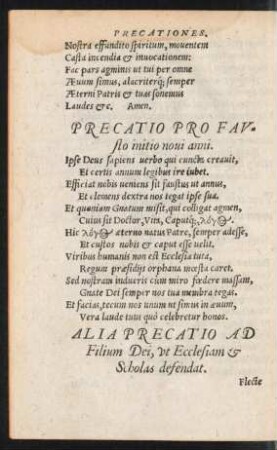 PRECATIONES.
Nostra effundito spiritum, moventem
Casta incendia & invocationem:
Fac pars agminis ut tui per omne
Ævum simus, alacriterq; semper
Æterni Patris & tuas sonemus
Laudes &c. Amen.
PRECATIO PRO FAV-
sto initio novi anni.
Ipse Deus sapiens verbo qui cuncta creavit,
Ei certis annum legibus ire iubet.
Efficiat nobis veniens sit faustus ut annus,
Et clemens dextra nos tegat ipse sua.
Et quoniam Gnatum misit, qui colligat agmen,
Cuius sit Doctor, Vita, Caputq; λόγος.
Hic λόγος æterno natus Patre, semper adesse,
Et custos nobis & caput esse velit.
Viribus humanis non est Ecclesia tuta,
Regum præsidijs orphana mœsta caret.
Sed nostram indueris cum miro fœdere massam,
Gnate Dei semper nos tua membra tegas.
Et facias, tecum nos unum ut simus in ævum,
Vera laude tuus quò celebretur honos.
ALIA PRECATIO AD
Filium Dei, ut Ecclesiam &
Scholas defendat.
Flecte